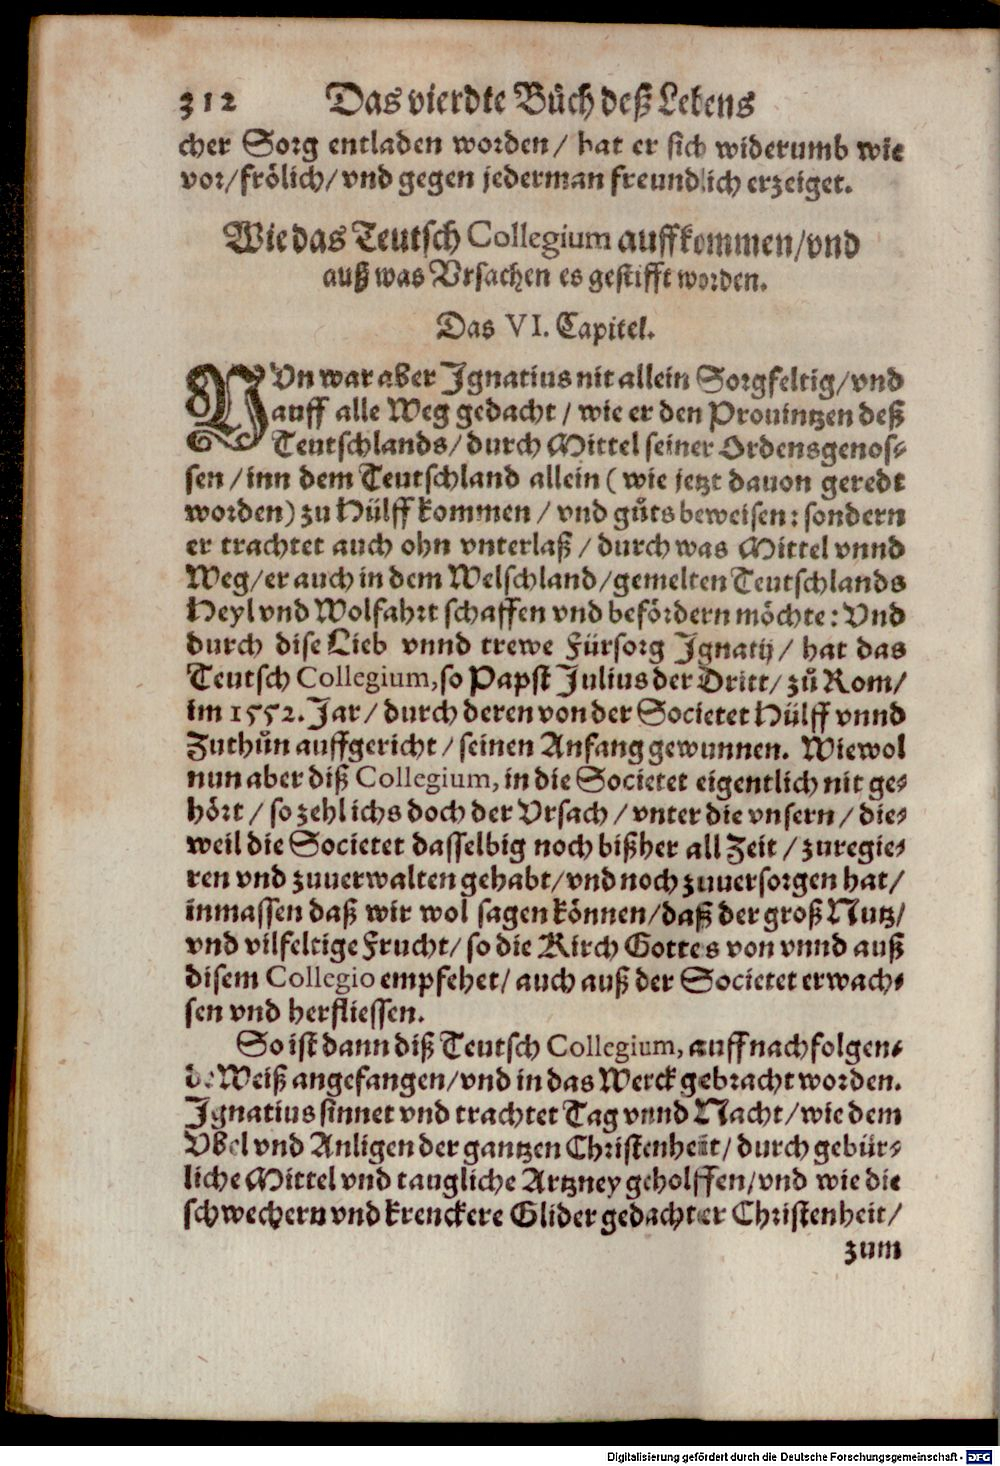 312 Das vierdte Bůch deß Lebens
cher Sorg entladen worden/ hat er sich widerumb wie
vor/frölich/vnd gegen jederman freundlich erzeiget.
Wie das Teutsch Collegium auffkommen/vnd
auß was Vrsachen es gestifft worden.
Das VI. Capitel.
NVn war aber Ignatius nit allein Sorgfeltig/vnd
auff alle Weg gedacht/ wie er den Prouintzen deß
Teutschlands/ durch Mittel seiner Ordensgenos-
sen/inn dem Teutschland allein (wie jetzt dauon geredt
worden) zu Hülff kommen/ vnd gůts beweisen: sondern
er trachtet auch ohn vnterlaß/ durch was Mittel vnnd
Weg/er auch in dem Welschland/gemelten Teutschlands
Heyl vnd Wolfahrt schaffen vnd befördern möchte: Vnd
durch dise Lieb vnnd trewe Fürsorg Ignatij/ hat das
Teutsch Collegium, so Papst Julius der Dritt/ zů Rom/
im 1552. Jar/ durch deren von der Societet Hülff vnnd
Zuthůn auffgericht/ seinen Anfang gewunnen. Wiewol
nun aber diß Collegium, in die Societet eigentlich nit ge-
hört/ so zehl ichs doch der Vrsach/ vnter die vnsern/ die-
weil die Societet dasselbig noch bißher all Zeit/ zuregie-
ren vnd zuuerwalten gehabt/vnd noch zuuersorgen hat/
inmassen daß wir wol sagen können/daß der groß Nutz/
vnd vilfeltige Frucht/ so die Kirch Gottes von vnnd auß
disem Collegio empfehet/ auch auß der Societet erwach-
sen vnd herfliessen.
So ist dann diß Teutsch Collegium, auff nachfolgen-
de Weiß angefangen/vnd in das Werck gebracht worden.
Ignatius sinnet vnd trachtet Tag vnnd Nacht/wie dem
Vbel vnd Anligen der gantzen Christenheit/ durch gebür-
liche Mittel vnd taugliche Artzney geholffen/vnd wie die
schwechern vnd krenckere Glider gedachter Christenheit/
zum
Digitalisierung gefördert durch die Deutsche Forschungsgemeinschaft - DFG